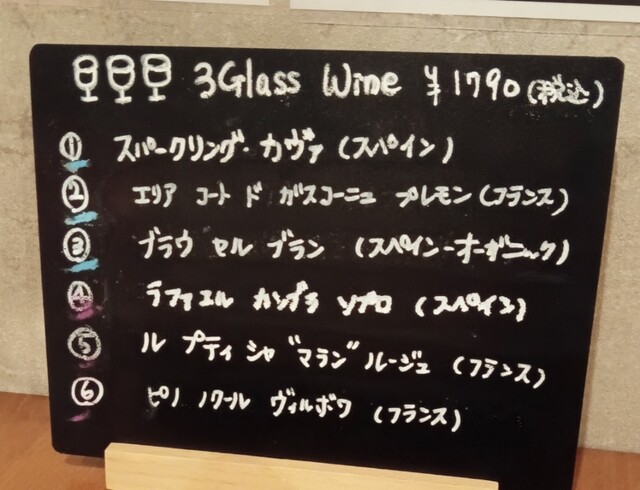 3Glass Wine ¥1790(税込)
① スパークリング・カヴァ (スペイン)
② エリア コート ド ガスコーニュ プレモン (フランス)
③ ブラウ セル ブラン (スペイン-オーガニック)
④ ラファエル カンブラ ソプロ (スペイン)
⑤ ル プティ シャ"マラン"ルージュ (フランス)
⑥ ピノ ノワール ヴィルボワ (フランス)